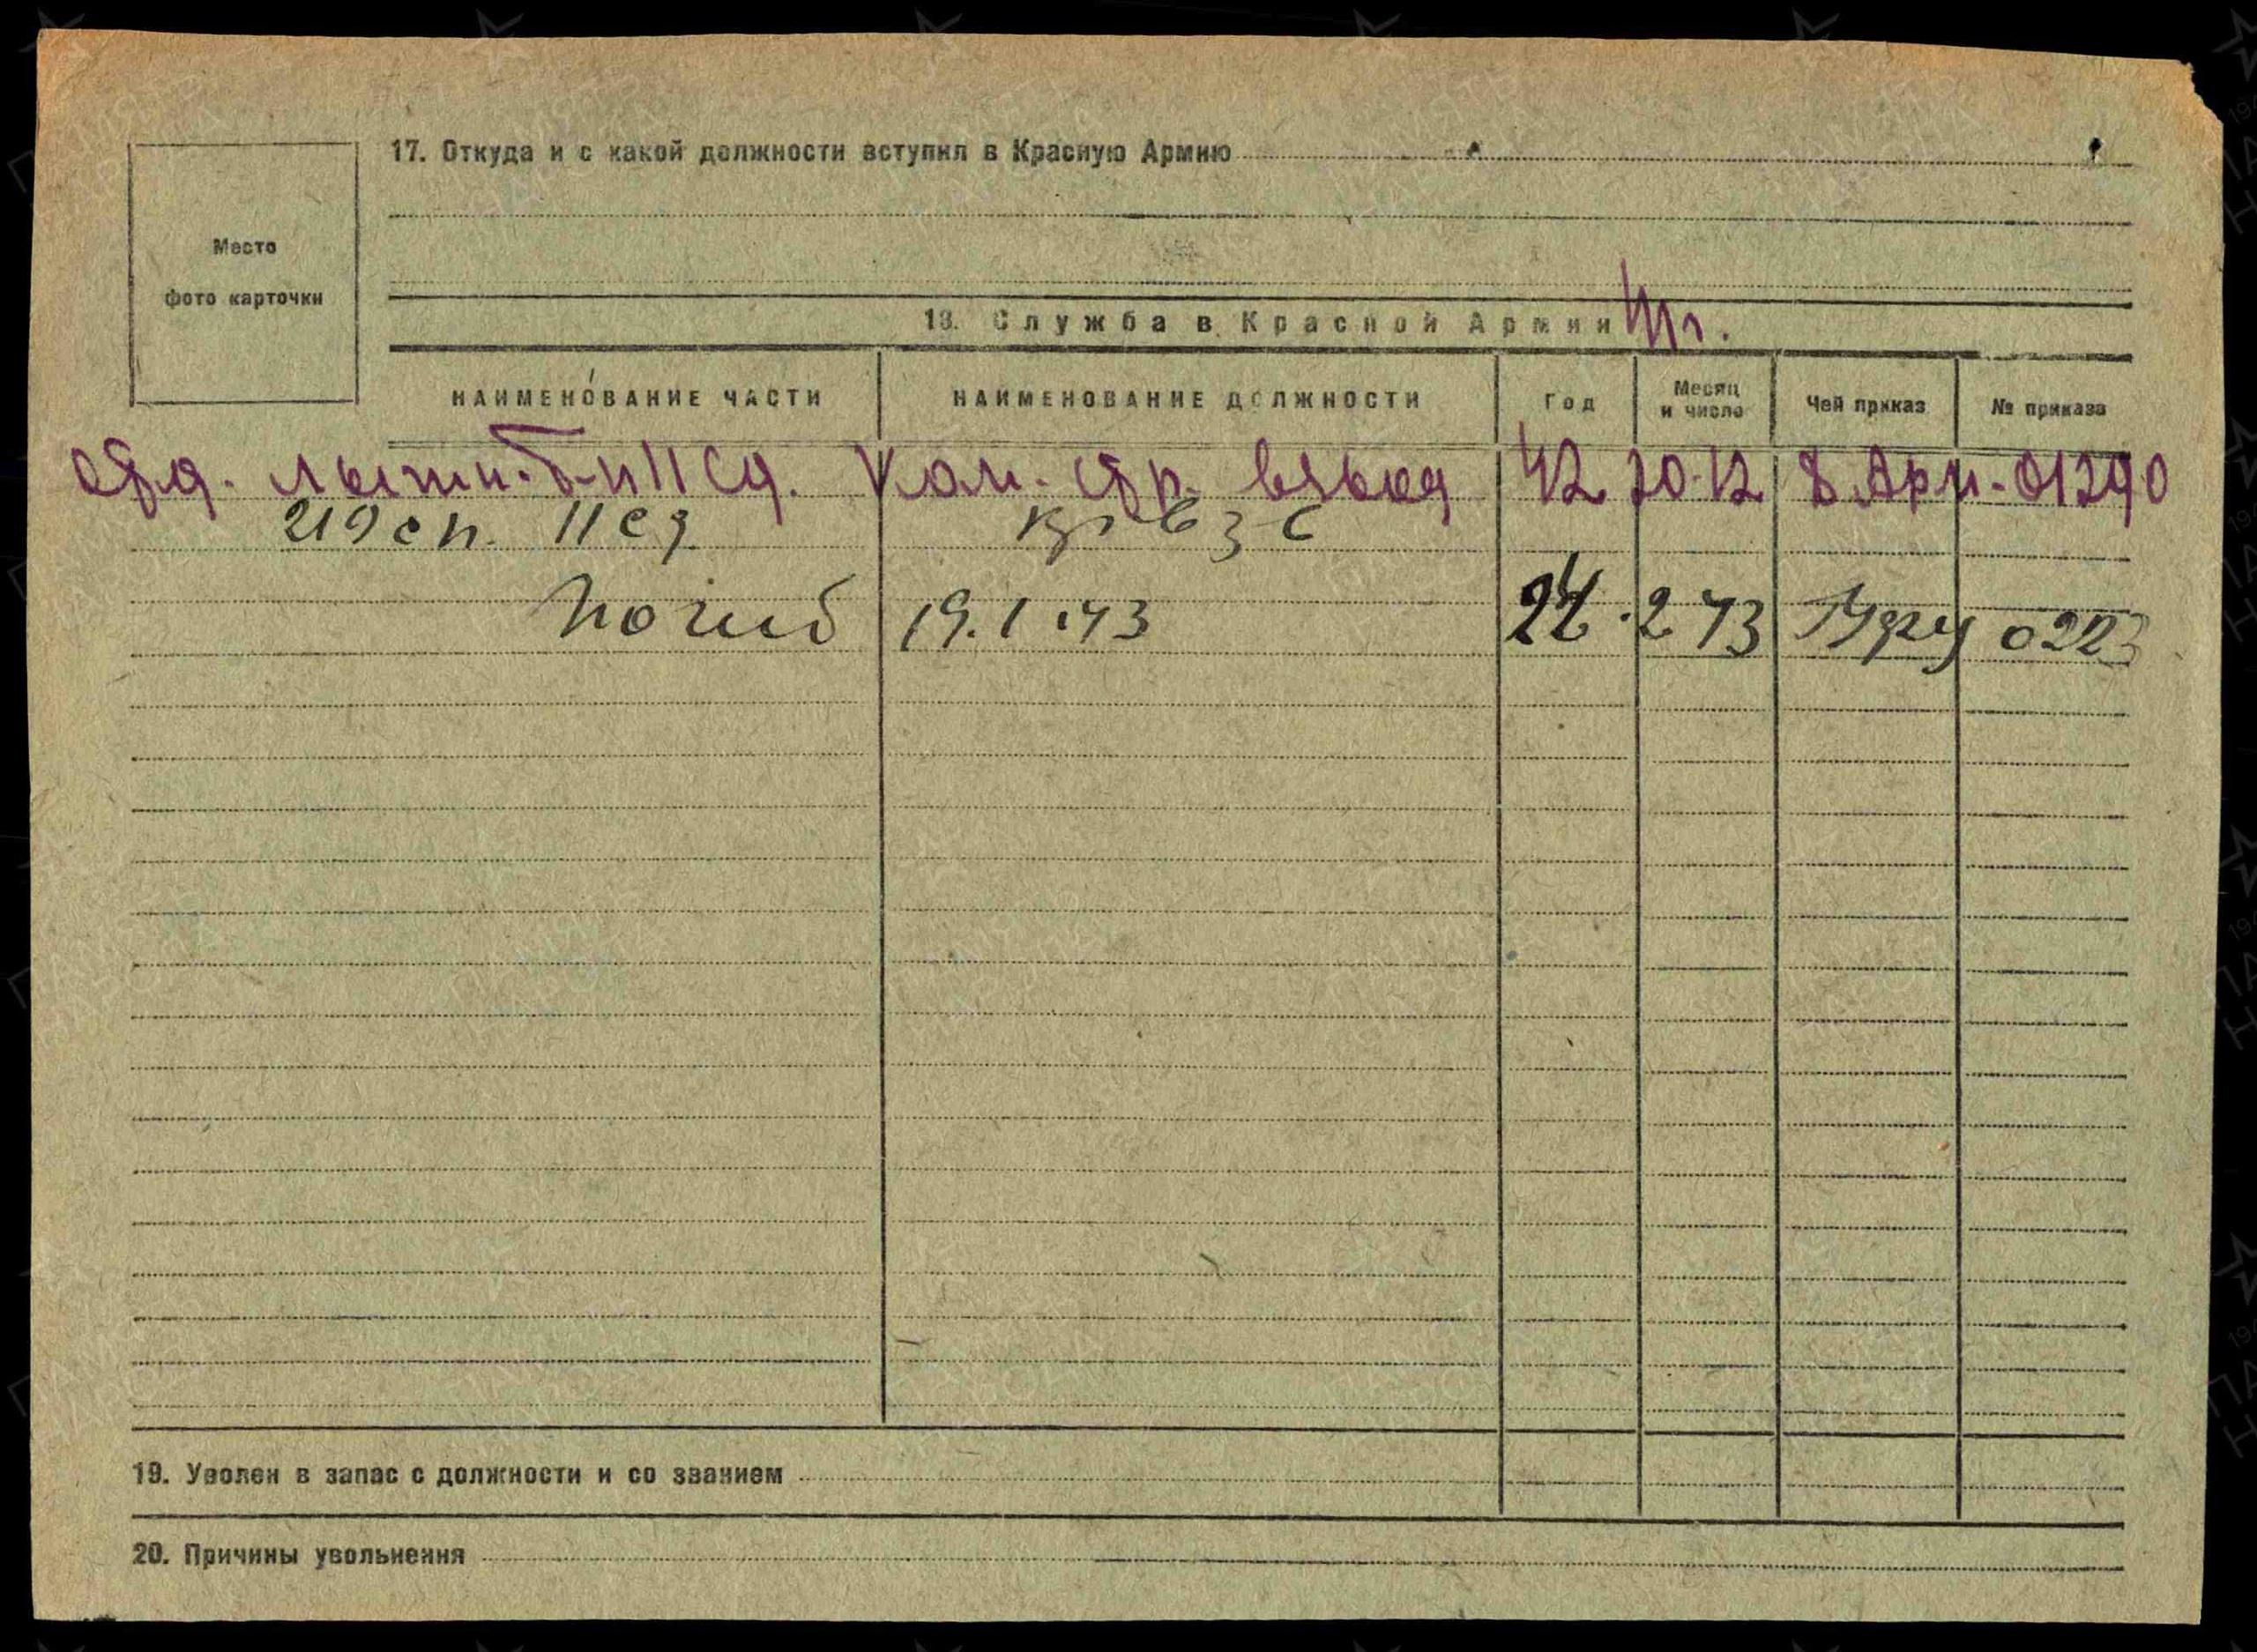 17. Откуда и с какой должности вступил в Красную Армию
Место
фото карточки
18. Служба в Красной Армии 41 г.
НАИМЕНОВАНИЕ ЧАСТИ НАИМЕНОВАНИЕ ДОЛЖНОСТИ Год Месяц и число Чей приказ № приказа
лыжн. б-н 11 сд. Ком. стр. взвод 42 30.12 8 Арм. 01290
219 сп. 11 сд
Погиб 19.1.43 2 43 022
19. Уволен в запас с должности и со званием
20. Причины увольнения